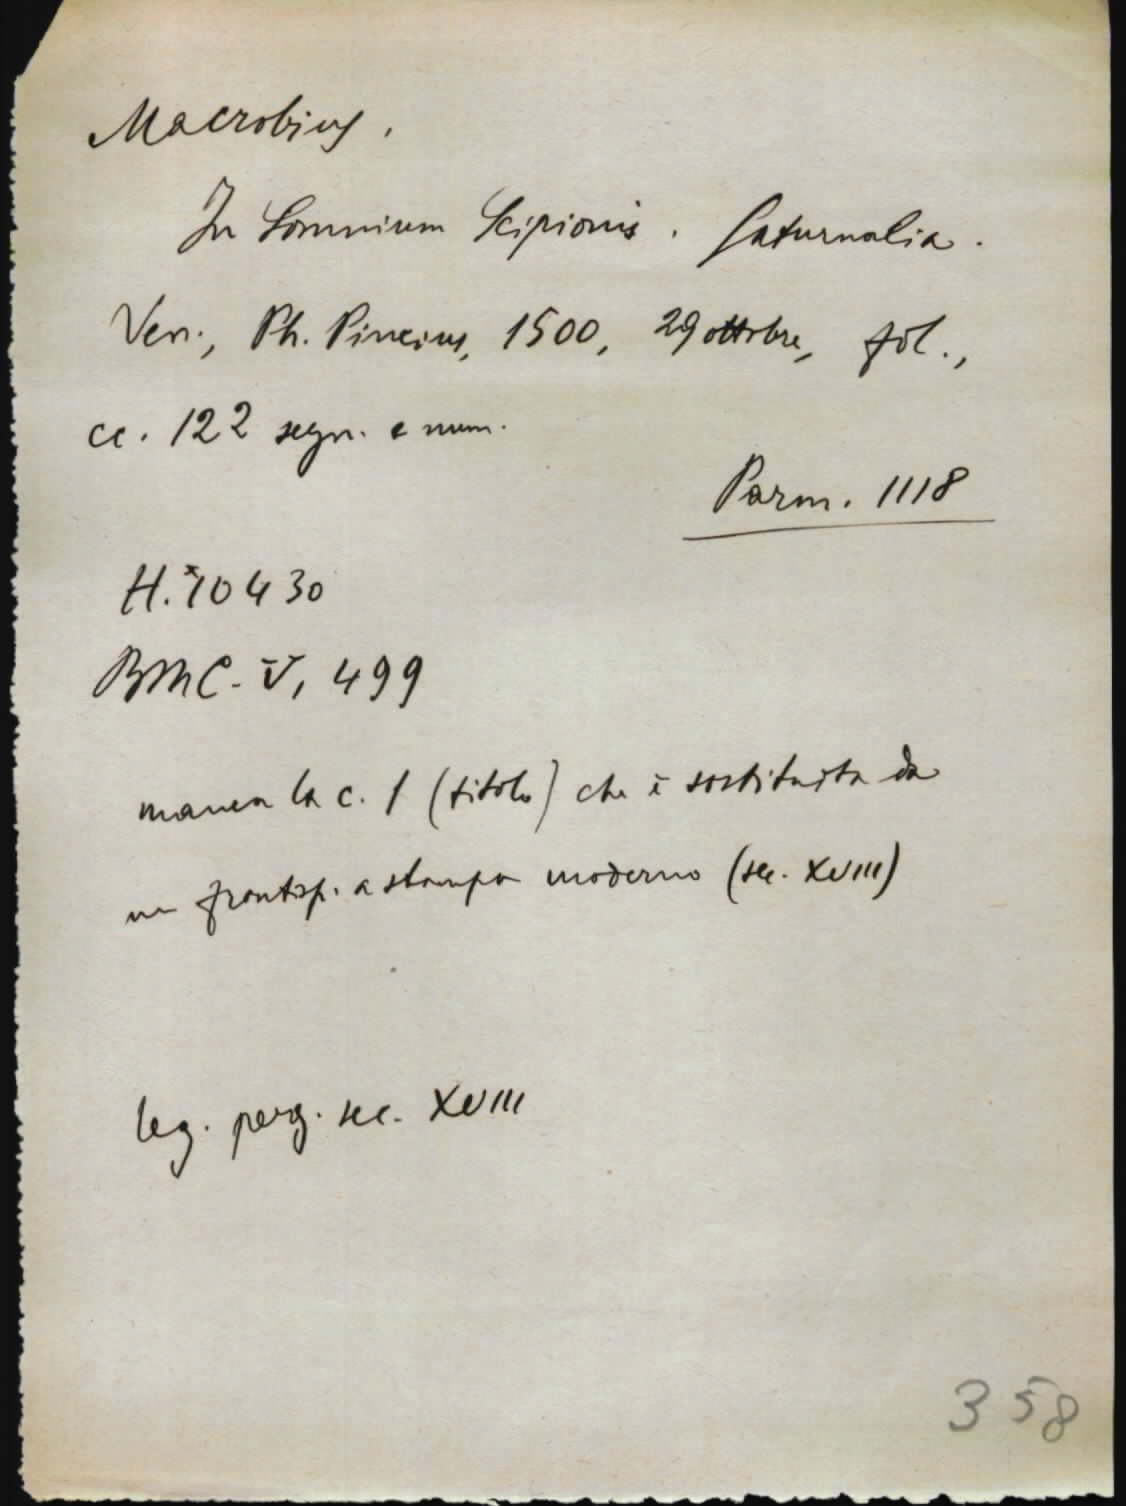 Macrobius.
In Somnium Scipionis. Saturnalia.
Ven., Ph. Pincius, 1500, 29 ottobre, fol.,
cc. 122 segn. e num.
Parm. 1118
H.*10430
BMC. V, 499
manca la c. 1 (titolo) che è sostituita da
un frontisp. a stampa moderno (sec. XVIII)
leg. perg. sec. XVIII
358